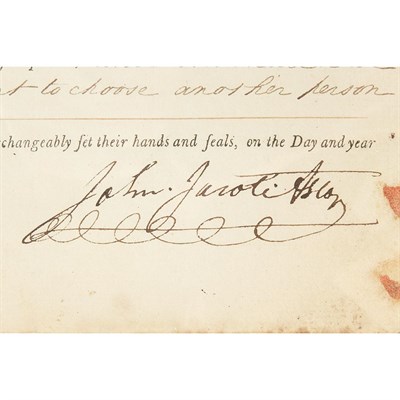 t to choose another person
changeably ſet their hands and ſeals, on the Day and year
John Jacob Astor